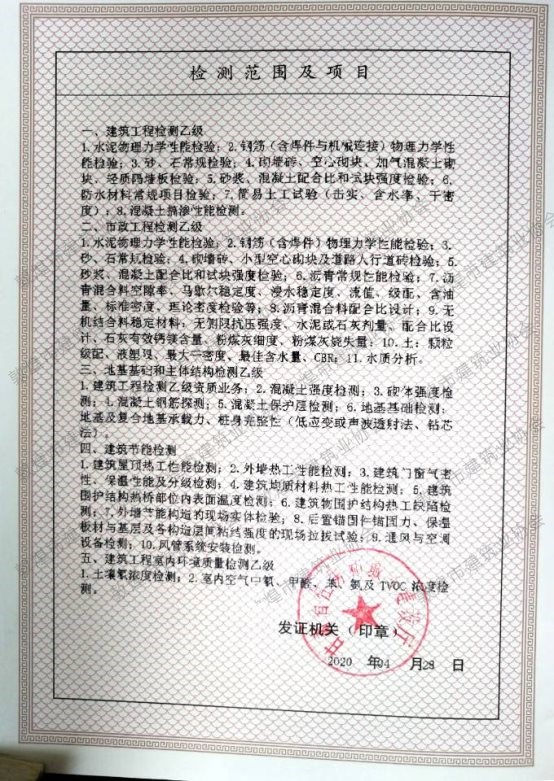 检测范围及项目
一、建筑工程检测乙级
1.水泥物理力学性能检验；2.钢筋（含焊件与机械连接）物理力学性
能检验；3.砂、石常规检验；4.砌墙砖、空心砌块、加气混凝土砌
块、轻质隔墙板检验；5.砂浆、混凝土配合比和试块强度检验；6.
防水材料常规项目检验；7.简易土工试验（击实、含水率、干密
度）；8.混凝土抗渗性能检测。
二、市政工程检测乙级
1.水泥物理力学性能检验；2.钢筋（含焊件）物理力学性能检验；3.
砂、石常规检验；4.砌墙砖、小型空心砌块及道路人行道砖检验；5.
砂浆、混凝土配合比和试块强度检验；6.沥青常规性能检验；7.沥
青混合料空隙率、马歇尔稳定度、浸水稳定度、流值、级配、含油
量、标准密度、理论密度检验等；8.沥青混合料配合比设计；9.无
机结合料稳定材料：无侧限抗压强度、水泥或石灰剂量、配合比设
计、石灰有效钙镁含量、粉煤灰细度、粉煤灰烧失量；10.土：颗粒
级配、液塑限、最大干密度、最佳含水量、CBR；11.水质分析。
三、地基基础和主体结构检测乙级
1.建筑工程检测乙级资质业务；2.混凝土强度检测；3.砌体强度检
测；4.混凝土钢筋探测；5.混凝土保护层检测；6.地基基础检测：
地基及复合地基承载力、桩身完整性（低应变或声波透射法、钻芯
法）。
四、建筑节能检测
1.建筑屋顶热工性能检测；2.外墙热工性能检测；3.建筑门窗气密
性、保温性能及分级检测；4.建筑均质材料热工性能检测；5.建筑
围护结构热桥部位内表面温度检测；6.建筑物围护结构热工缺陷检
测；7.外墙节能构造的现场实体检验；8.后置锚固件锚固力、保温
板材与基层及各构造层间粘结强度的现场拉拔试验；9.通风与空调
设备检测；10.风管系统安装检测。
五、建筑工程室内环境质量检测乙级
1.土壤氡浓度检测；2.室内空气中氡、甲醛、苯、氨及TVOC浓度检
测。
发证机关（印章）
2020 年04 月28 日